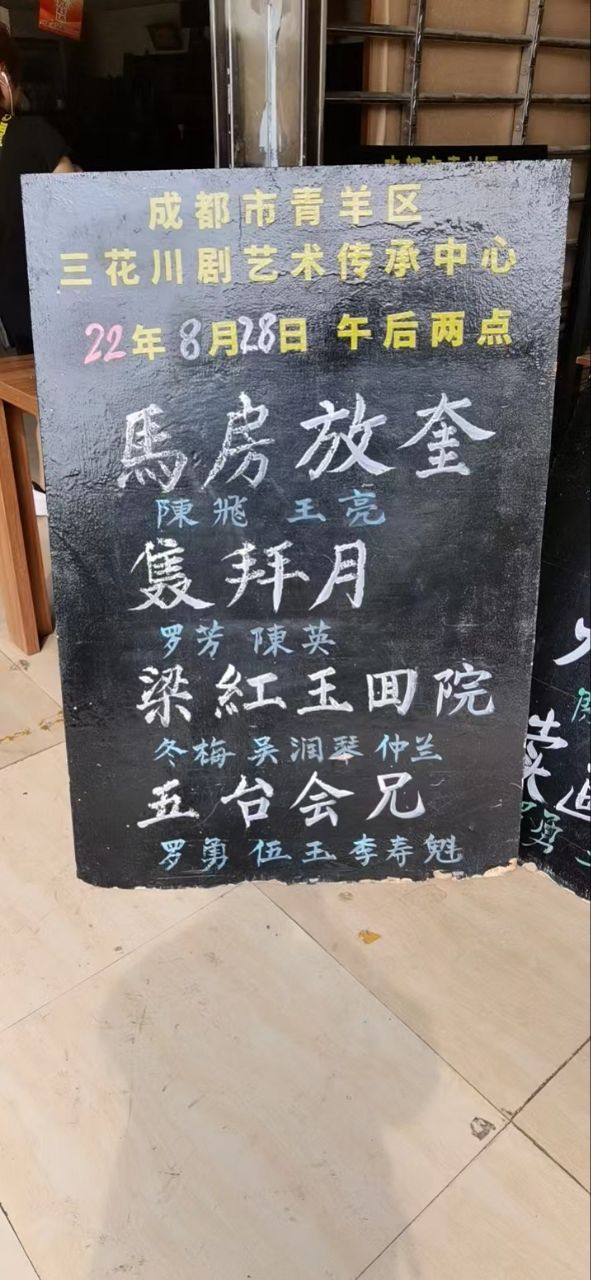 成都市青羊区
三花川剧艺术传承中心
22年8月28日 午后两点
馬房放奎
陳飛 王亮
雙拜月
罗芳 陳英
梁紅玉囬院
冬梅 吴润琴 仲兰
五台会兄
罗勇 伍玉 李寿魁